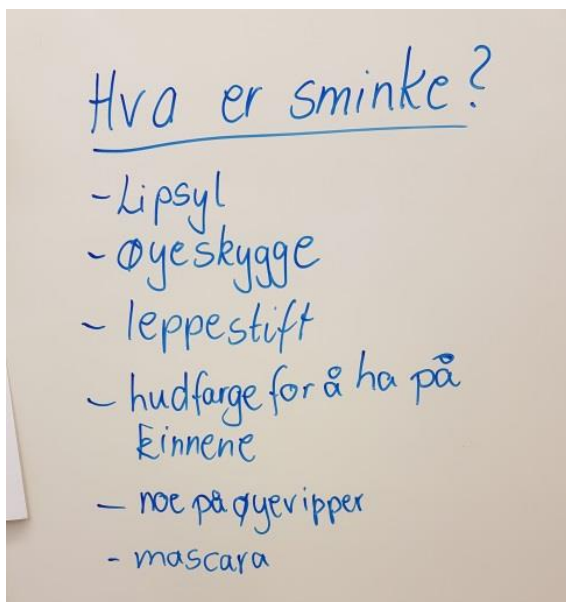 Hva er sminke?
- Lipsyl
- øyeskygge
- leppestift
- hudfarge for å ha på
kinnene
- noe på øyevipper
- mascara